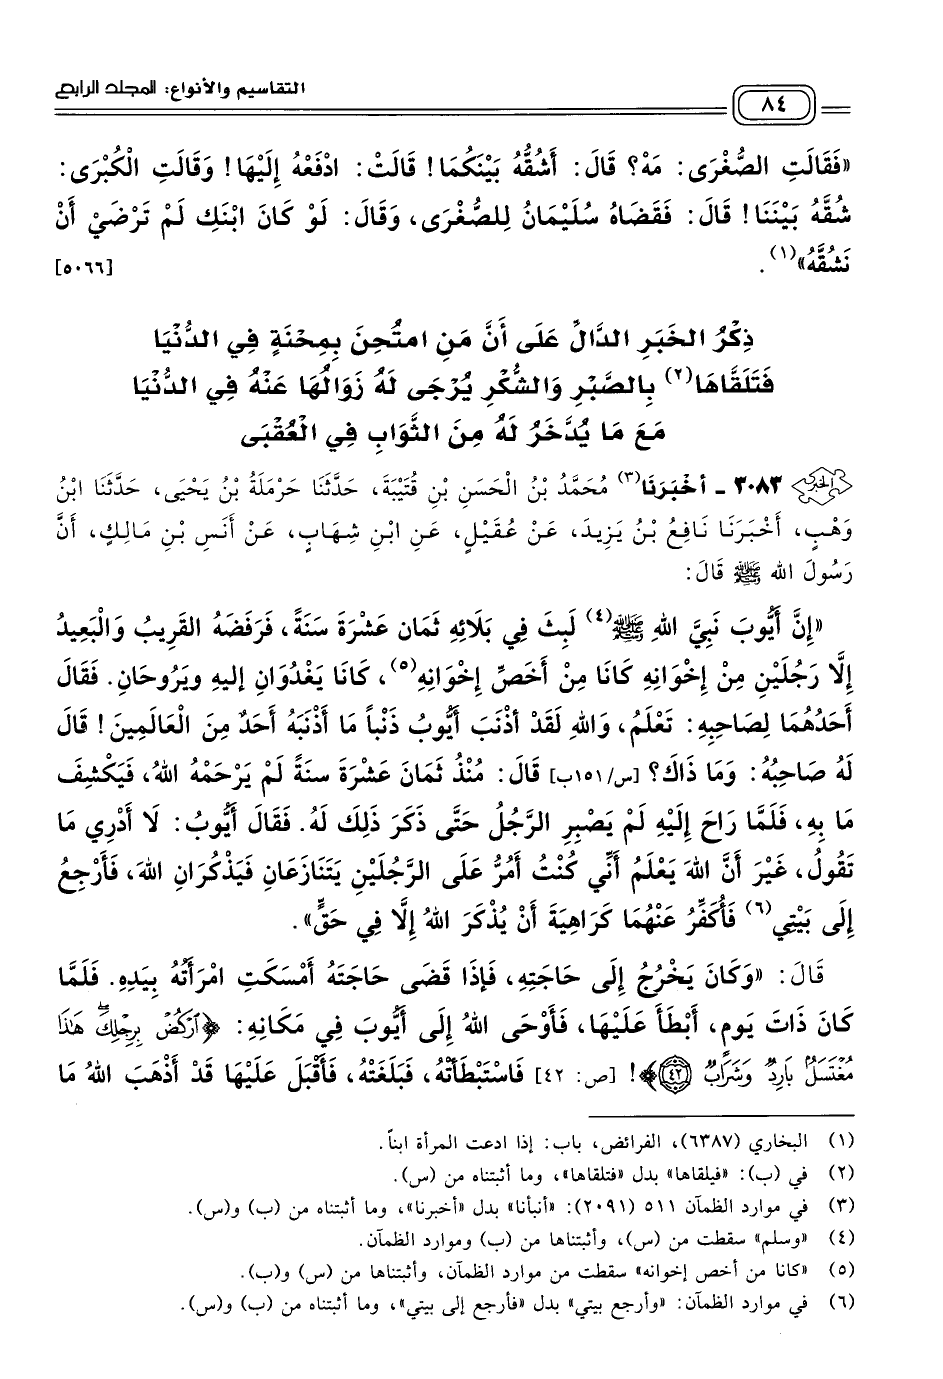 التقاسيم والأنواع: المجلد الرابع
٨٤
«فَقَالَتِ الصُّغْرَى: مَهْ؟ قَالَ: أَشُقُّهُ بَيْنَكُمَا! قَالَتْ: ادْفَعْهُ إِلَيْهَا! وَقَالَتِ الْكُبْرَى:
شُقَّهُ بَيْنَنَا! قَالَ: فَقَضَاهُ سُلَيْمَانُ لِلصُّغْرَى، وَقَالَ: لَوْ كَانَ ابْنَكِ لَمْ تَرْضَيْ أَنْ
نَشُقَّهُ»(١). [٥٠٦٦]
ذِكْرُ الخَبَرِ الدَّالِّ عَلَى أَنَّ مَنِ امتُحِنَ بِمِحْنَةٍ فِي الدُّنْيَا
فَتَلَقَّاهَا(٢) بِالصَّبْرِ وَالشُّكْرِ يُرْجَى لَهُ زَوَالُهَا عَنْهُ فِي الدُّنْيَا
مَعَ مَا يُدَّخَرُ لَهُ مِنَ الثَّوَابِ فِي الْعُقْبَى
الخبر ٣٠٨٣ ـ أخْبَرَنَا(٣) مُحَمَّدُ بْنُ الْحَسَنِ بْنِ قُتَيْبَةَ، حَدَّثَنَا حَرْمَلَةُ بْنُ يَحْيَى، حَدَّثَنَا ابْنُ
وَهْبٍ، أَخْبَرَنَا نَافِعُ بْنُ يَزِيدَ، عَنْ عُقَيْلٍ، عَنِ ابْنِ شِهَابٍ، عَنْ أَنَسِ بْنِ مَالِكٍ، أَنَّ
رَسُولَ الله ﷺ قَالَ:
«إِنَّ أَيُّوبَ نَبِيَّ اللهِ ﷺ(٤) لَبِثَ فِي بَلَائِهِ ثَمَان عَشْرَةَ سَنَةً، فَرَفَضَهُ القَرِيبُ وَالْبَعِيدُ
إِلَّا رَجُلَيْنِ مِنْ إِخْوَانِهِ كَانَا مِنْ أَخَصِّ إِخْوَانِهِ(٥)، كَانَا يَغْدُوَانِ إليهِ ويَرُوحَانِ. فَقَالَ
أَحَدُهُمَا لِصَاحِبِهِ: تَعْلَمُ، وَاللهِ لَقَدْ أذْنَبَ أَيُّوبُ ذَنْباً مَا أَذْنَبَهُ أَحَدٌ مِنَ الْعَالَمِينَ! قَالَ
لَهُ صَاحِبُهُ: وَمَا ذَاكَ؟ [س/١٥١ب] قَالَ: مُنْذُ ثَمَان عَشْرَةَ سنَةً لَمْ يَرْحَمْهُ اللهُ، فَيَكْشِفَ
مَا بِهِ، فَلَمَّا رَاحَ إِلَيْهِ لَمْ يَصْبِرِ الرَّجُلُ حَتَّى ذَكَرَ ذَلِكَ لَهُ. فَقَالَ أَيُّوبُ: لَا أَدْرِي مَا
تَقُولُ، غَيْرَ أَنَّ اللهَ يَعْلَمُ أَنِّي كُنْتُ أَمُرُّ عَلَى الرَّجُلَيْنِ يَتَنَازَعَانِ فَيَذْكُرَانِ اللهَ، فَأَرْجِعُ
إِلَى بَيْتِي(٦) فَأُكَفِّرُ عَنْهُمَا كَرَاهِيَةَ أَنْ يُذْكَرَ اللهُ إِلَّا فِي حَقٍّ».
قَالَ: «وَكَانَ يَخْرُجُ إِلَى حَاجَتِهِ، فَإِذَا قَضَى حَاجَتَهُ أَمْسَكَتِ امْرَأَتُهُ بِيَدِهِ. فَلَمَّا
كَانَ ذَاتَ يَومٍ، أَبْطَأَ عَلَيْهَا، فَأَوْحَى اللهُ إِلَى أَيُّوبَ فِي مَكَانِهِ: ﴿ٱرْكُضْ بِرِجْلِكَۖ هَٰذَا
مُغْتَسَلُۢ بَارِدٌ وَشَرَابٌ ٤٢﴾! [ص: ٤٢] فَاسْتَبْطَأَتْهُ، فَبَلَغَتْهُ، فَأَقْبَلَ عَلَيْهَا قَدْ أَذْهَبَ اللهُ مَا
(١) البخاري (٦٣٨٧)، الفرائض، باب: إذا ادعت المرأة ابناً.
(٢) في (ب): «فيلقاها» بدل «فتلقاها»، وما أثبتناه من (س).
(٣) في موارد الظمآن ٥١١ (٢٠٩١): «أنبأنا» بدل «أخبرنا»، وما أثبتناه من (ب) و(س).
(٤) «وسلم» سقطت من (س)، وأثبتناها من (ب) وموارد الظمآن.
(٥) «كانا من أخص إخوانه» سقطت من موارد الظمآن، وأثبتناها من (س) و(ب).
(٦) في موارد الظمآن: «وأرجع بيتي» بدل «فأرجع إلى بيتي»، وما أثبتناه من (ب) و(س).